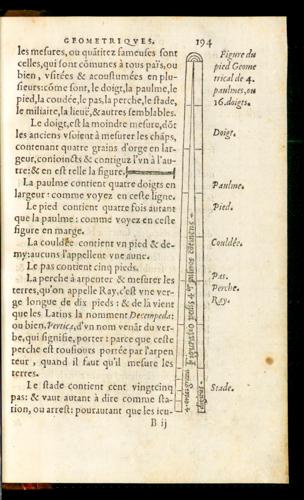 GEOMETRIQVES. 194
les mesures, ou quãtitez fameuses sont
celles, qui sont cõmunes à tous païs, ou
bien, vsitées & acoustumées en plu-
sieurs: cõme sont, le doigt, la paulme, le
pied, la coudée, le pas, la perche, le stade,
le miliaire, la lieuë, & autres semblables.
Le doigt, est la moindre mesure, dõt
les anciens vsoient à mesurer les chãps,
contenant quatre grains d'orge en lar-
geur, conioincts & contiguz l'vn à l'au-
tre: & en est telle la figure.
La paulme contient quatre doigts en
largeur: comme voyez en ceste ligne.
Le pied contient quatre fois autant
que la paulme: comme voyez en ceste
figure en marge.
La coudée contient vn pied & de-
my: aucuns l'appellent vne aune.
Le pas contient cinq pieds.
La perche à arpenter & mesurer les
terres, qu'on appelle Ray, c'est vne ver-
ge longue de dix pieds: & de là vient
que les Latins la nomment Decempeda:
ou bien, Pertica, d'vn nom venãt du ver-
be, qui signifie, porter: parce que ceste
perche est tousiours portée par l'arpen
teur, quand il faut qu'il mesure les
terres.
Le stade contient cent vingtcinq
pas: & vaut autant à dire comme sta-
tion, ou arrest: pourautant que les ieu-
B ij
Figure du
pied Geome
trical de 4.
paulmes, ou
16. doigts.
Doigt.
Paulme.
Pied.
Couldée.
Pas.
Perche.
Ray.
Stade.
Figuratio pedis 4or palmos continens